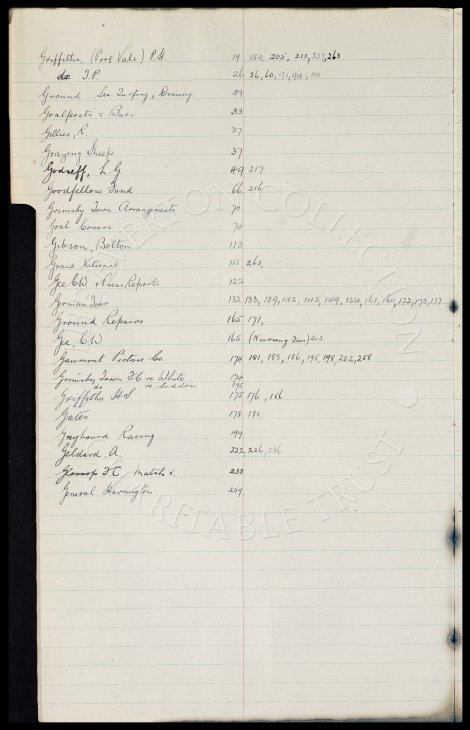 Griffiths, (Port Vale) P.G. 19 159, 205, 212, 237, 263
do T.P. 26 56, 60, 91, 94, 110
Ground See Turfing, Draining 29
Goalposts & Bars 33
Gillies, R. 37
Grazing Sheep 37
Godseff, L. G. 49 217
Goodfellow Fund 66 216
Grimsby Town Arrangements 70
Goal Covers 74
Gibson, Bolton 113
Grand National 115 263
Gee CW & Press Reports 122
German Tour 132 133, 139, 142, 145, 149, 154, 161, 164, 172, 173, 177
Ground Repairs 165 171,
Gee, C.W 165 (Nursing) 203
Gaumont Picture Co. 174 181, 183, 186, 195, 198, 202, 258
Grimsby Town F.C re White 174
do re Seddon 195
Griffiths H S 175 176, 186
Gates 178 180
Greyhound Racing 199
Geldard, A. 222 226, 236
Glossop F.C, Match v. 233
General Harrington 249
EVERTON COLLECTION
CHARITABLE TRUST